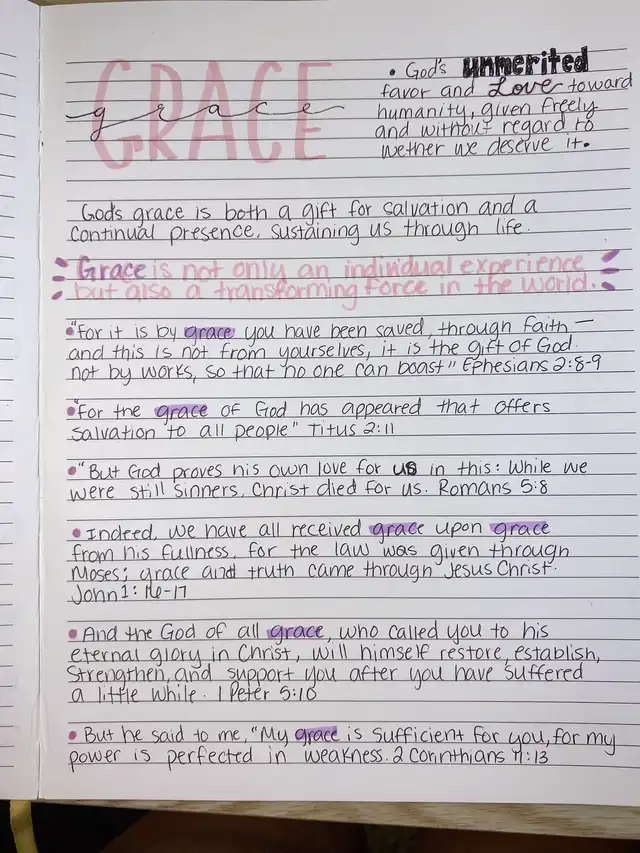 GRACE
grace
• God's unmerited
favor and Love toward
humanity, given freely
and without regard to
wether we deserve it.
God's grace is both a gift for salvation and a
continual presence, sustaining us through life.
Grace is not only an individual experience
but also a transforming force in the world.
• "For it is by grace you have been saved, through faith —
and this is not from yourselves, it is the gift of God.
not by works, so that no one can boast" Ephesians 2:8-9
• "For the grace of God has appeared that offers
salvation to all people" Titus 2:11
• "But God proves his own love for us in this: While we
were still sinners, Christ died for us. Romans 5:8
• Indeed, we have all received grace upon grace
from his fullness, for the law was given through
Moses; grace and truth came through Jesus Christ.
John 1:16-17
• And the God of all grace, who called you to his
eternal glory in Christ, will himself restore, establish,
strengthen, and support you after you have suffered
a little while. 1 Peter 5:10
• But he said to me, "My grace is sufficient for you, for my
power is perfected in weakness. 2 Corinthians